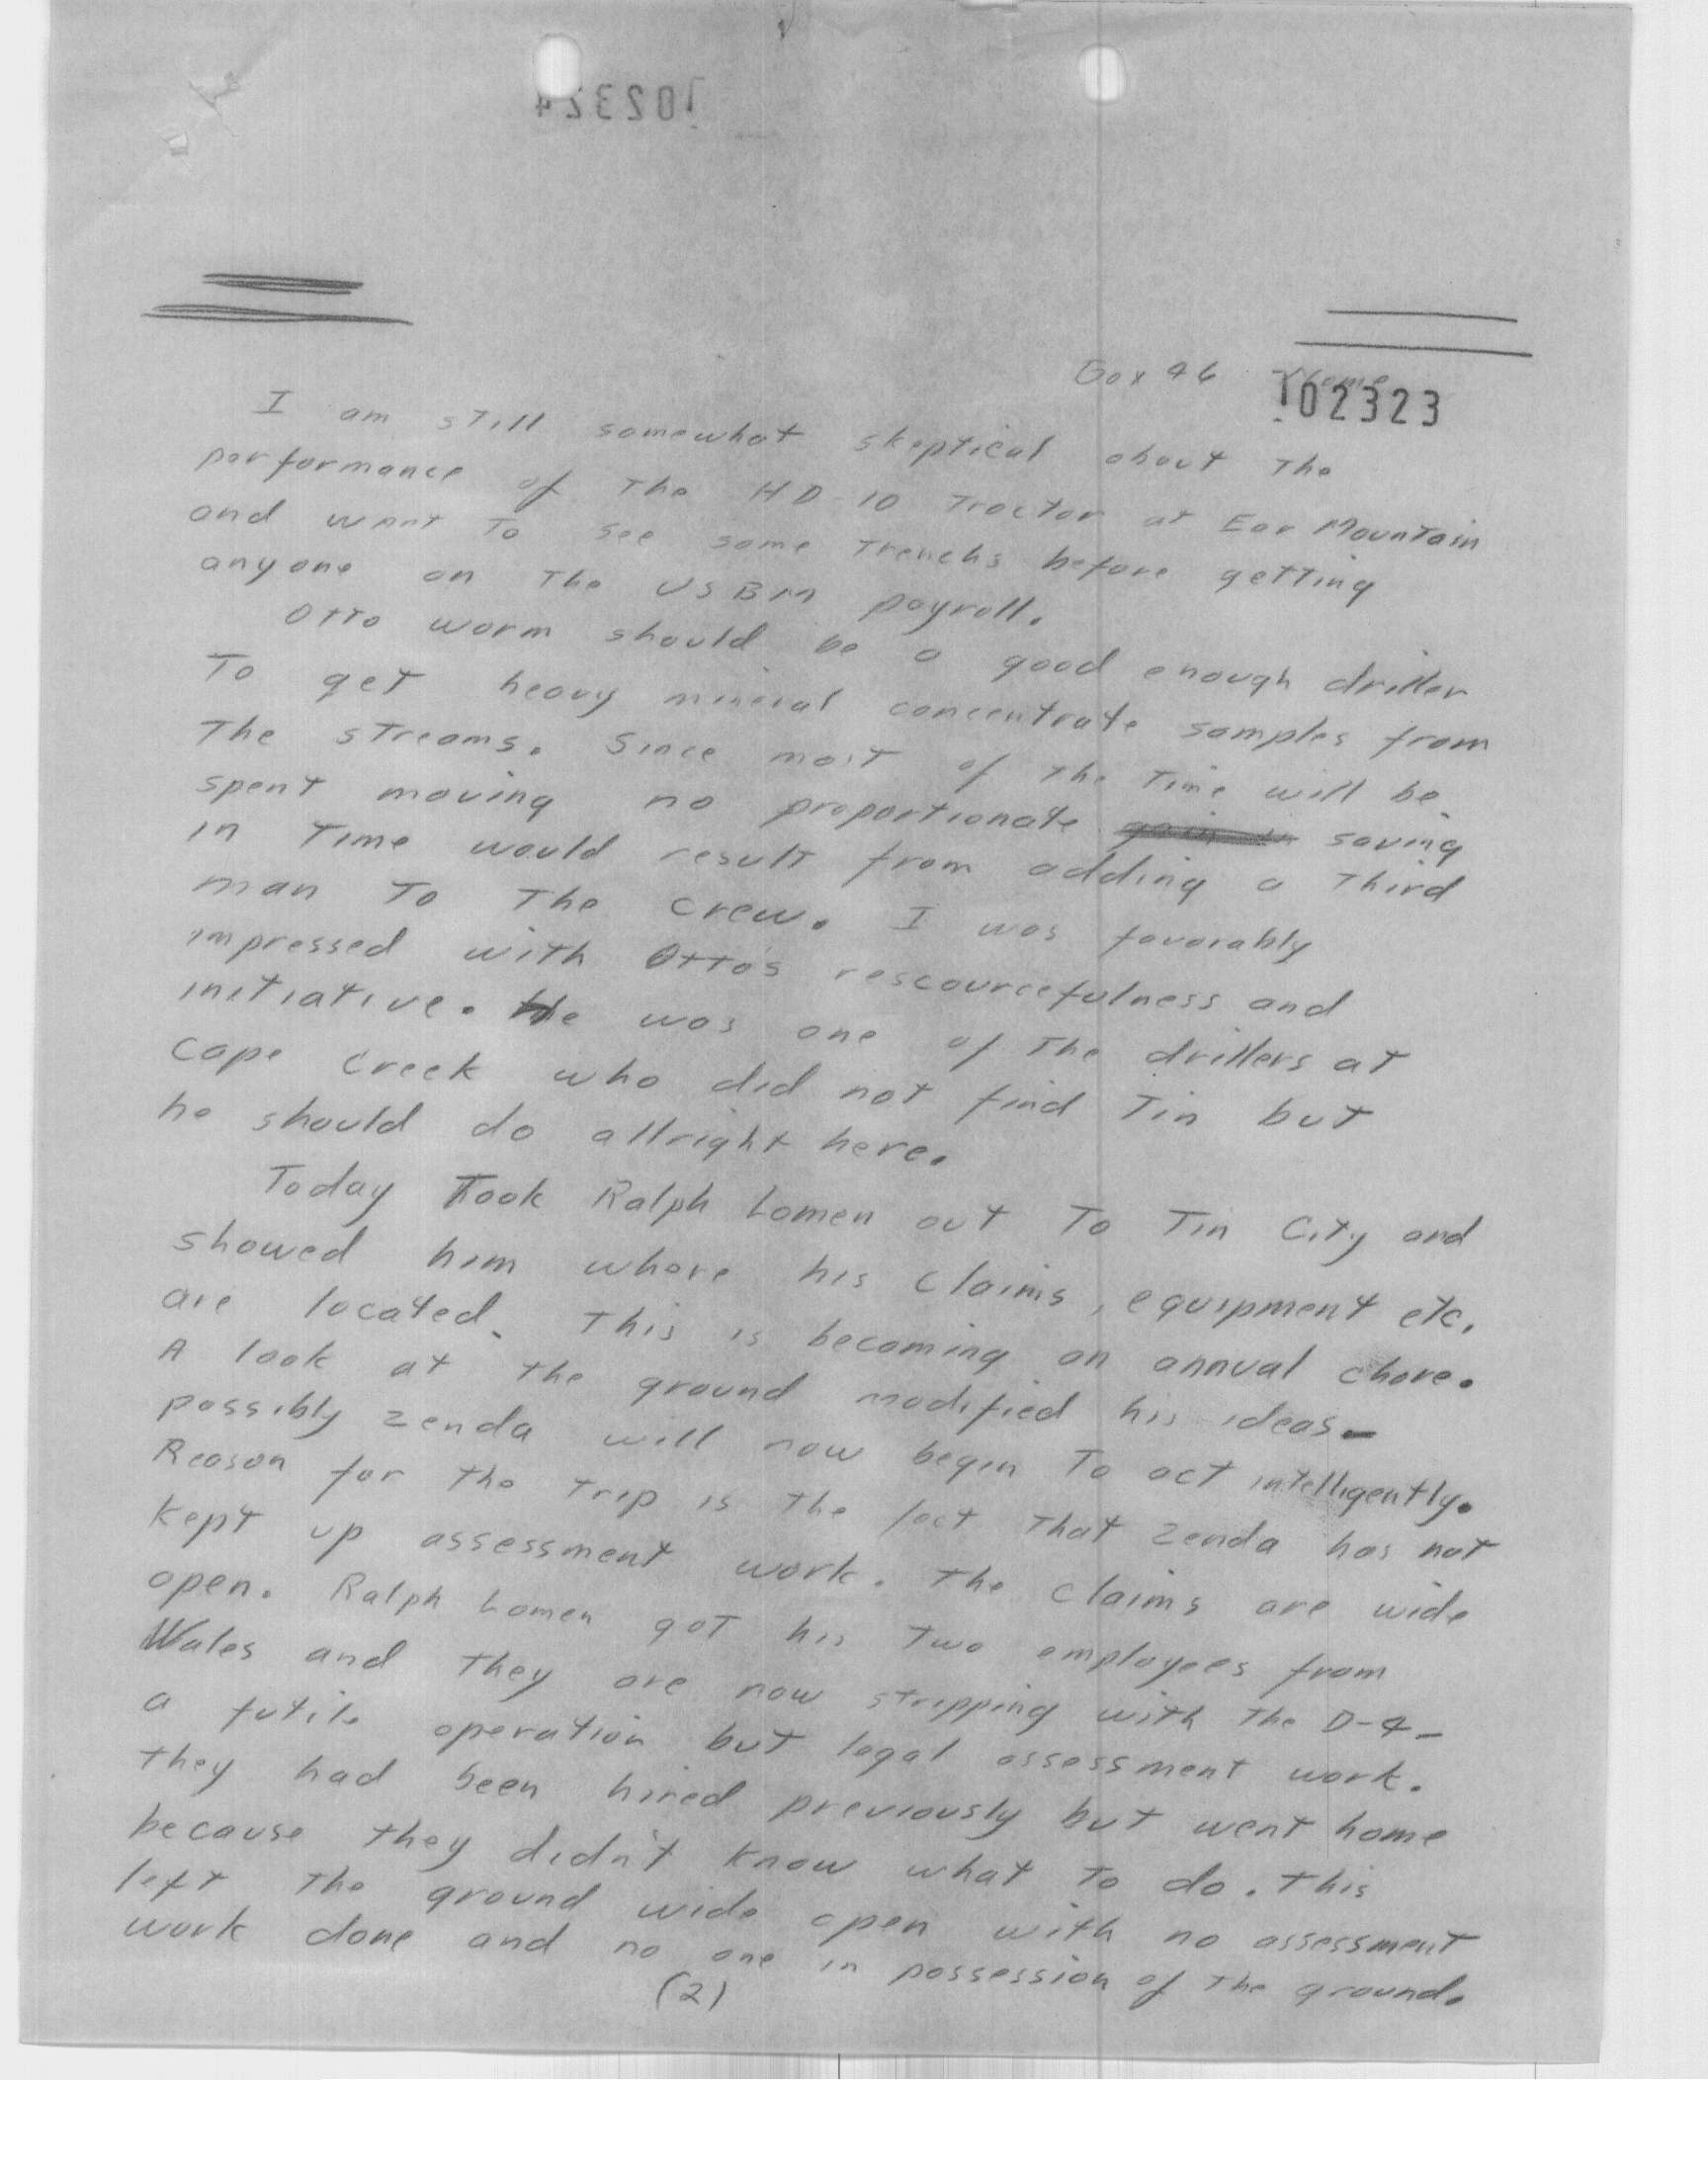 102324
Box 46 Nome
102323
I am still somewhat skeptical about the
performance of the HD-10 Tractor at Ear Mountain
and want to see some trenchs before getting
anyone on the USBM payroll.
Otto worm should be a good enough driller
To get heavy mineral concentrate samples from
The streams. Since most of the time will be
spent moving no proportionate saving
in Time would result from adding a Third
man To The crew. I was favorably
impressed with Otto's rescourcefulness and
initiative. He was one of the drillers at
Cape Creek who did not find Tin but
he should do allright here.
Today Took Ralph Lomen out To Tin City and
showed him where his claims, equipment etc.
are located. This is becoming an annual chore.
A look at the ground modified his ideas-
possibly Zenda will now begin To act intelligently.
Reason for the trip is the fact that Zenda has not
kept up assessment work. The claims are wide
open. Ralph Lomen got his two employees from
Wales and they are now stripping with the D-4-
a futile operation but legal assessment work.
They had been hired previously but went home
because they didn't know what to do. This
left the ground wide open with no assessment
work done and no one in possession of the ground.
(2)